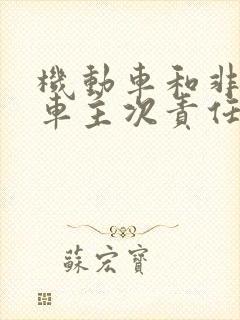 機動車和非
車主次責任
蘇宏寶